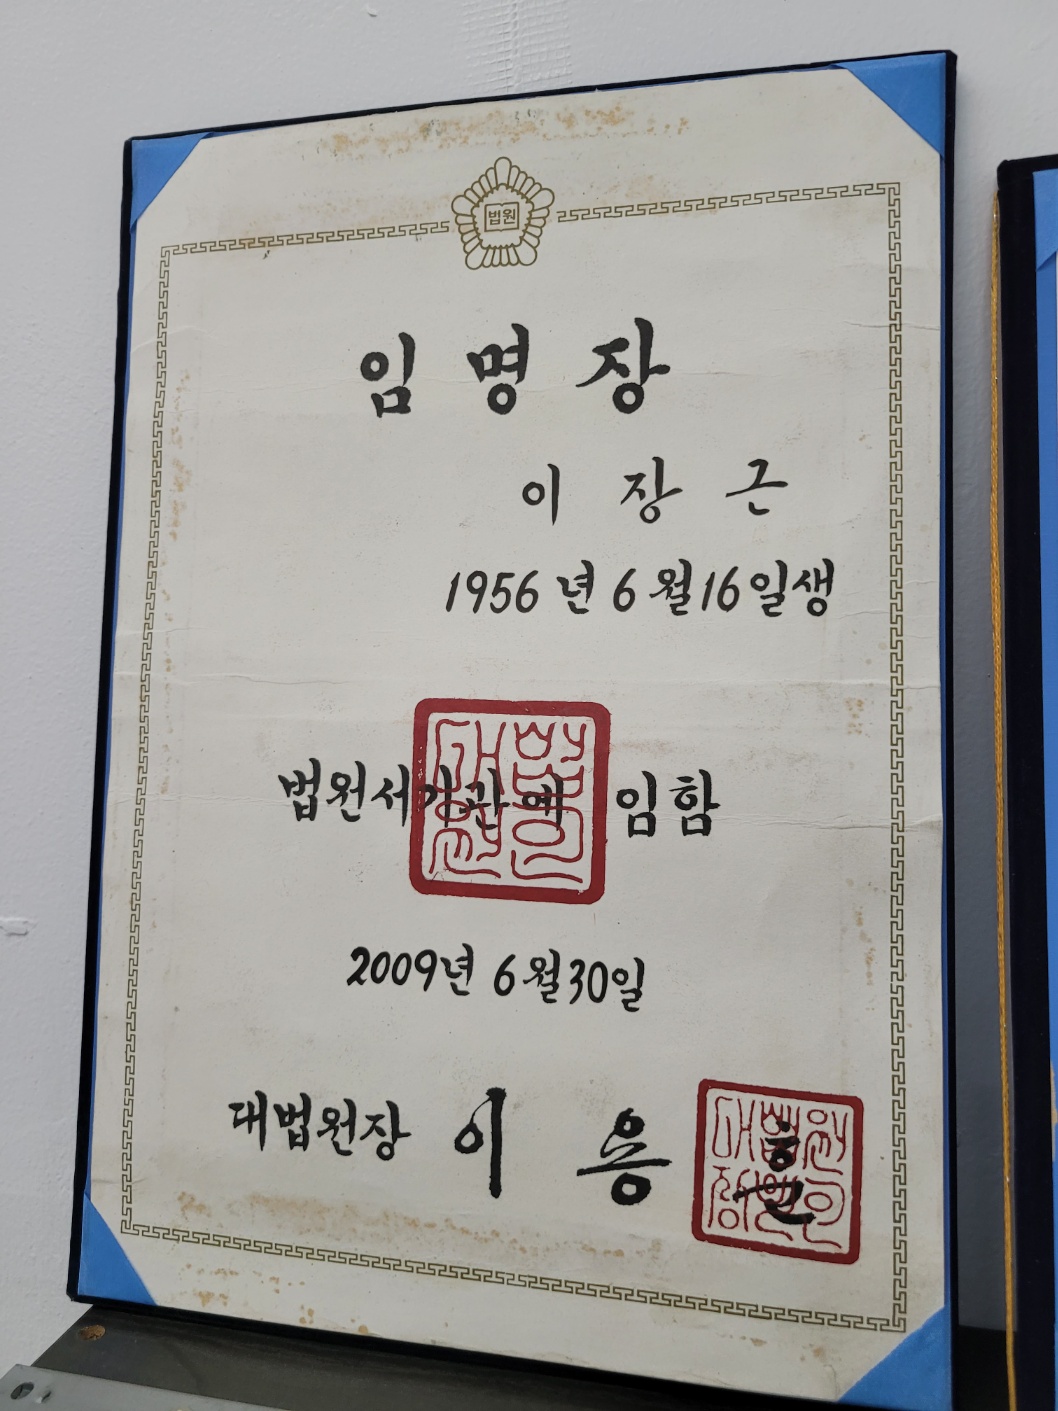 법원
임명장
이장근
1956년 6월 16일생
법원서기관에 임함
2009년 6월 30일
대법원장 이용훈